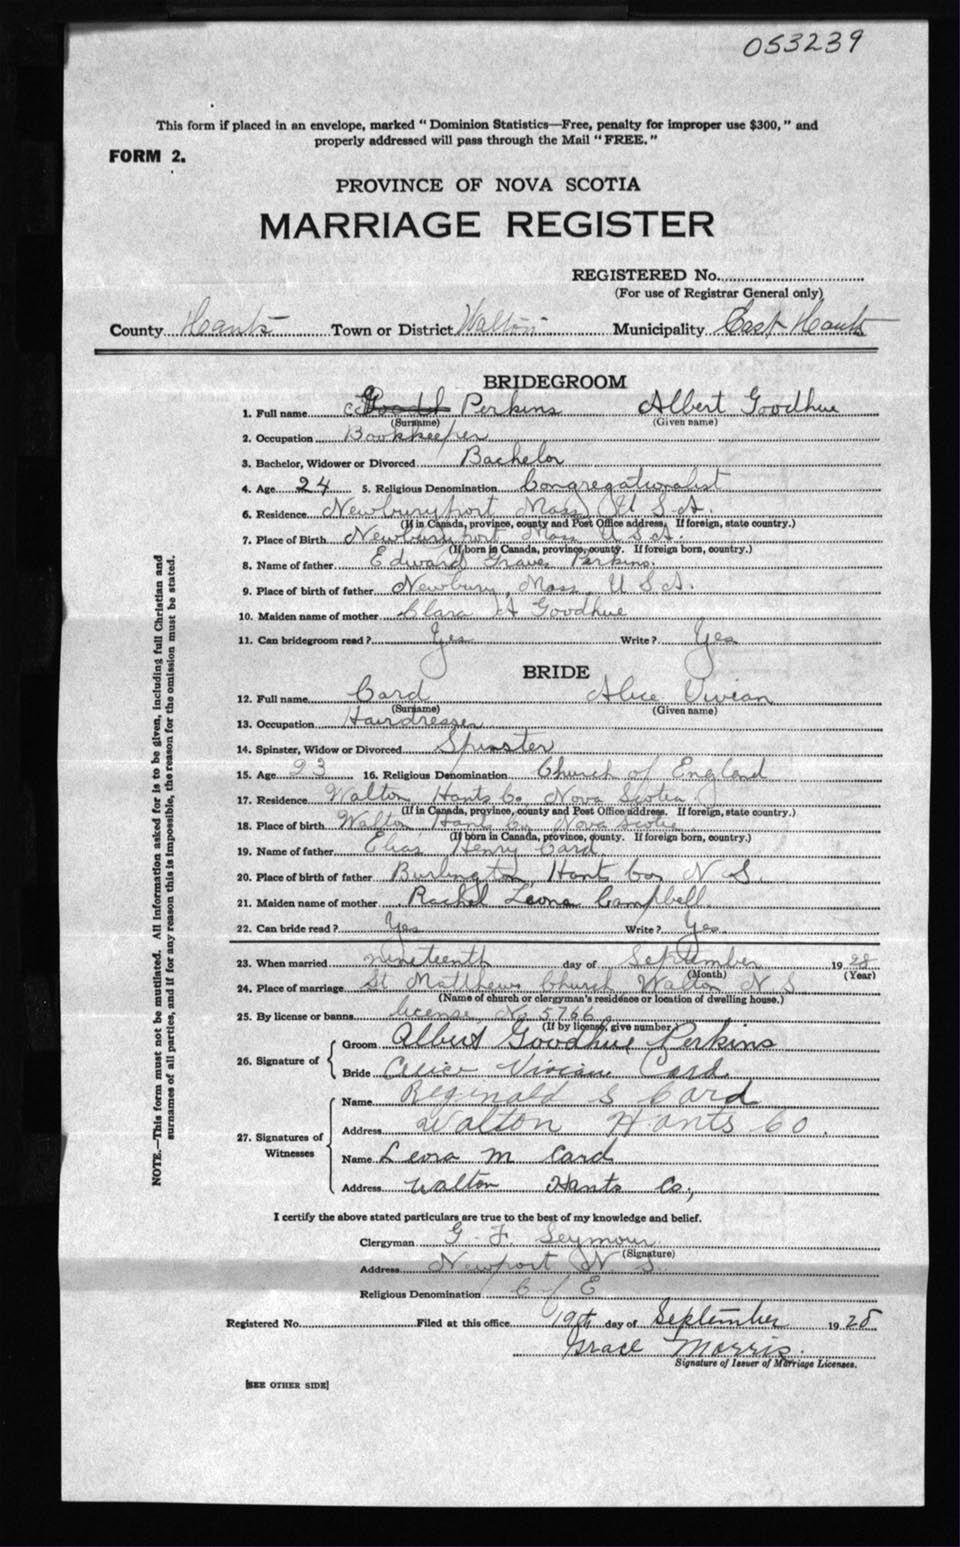 053239
This form if placed in an envelope, marked "Dominion Statistics—Free, penalty for improper use $300," and
properly addressed will pass through the Mail "FREE."
FORM 2.
PROVINCE OF NOVA SCOTIA
MARRIAGE REGISTER
REGISTERED No.
(For use of Registrar General only)
County Hants Town or District Walton Municipality East Hants
BRIDEGROOM
1. Full name Perkins Albert Goodhue
(Surname) (Given name)
2. Occupation Bookkeeper
3. Bachelor, Widower or Divorced Bachelor
4. Age 24 5. Religious Denomination Congregationalist
6. Residence Newburyport Mass. U S A.
(If in Canada, province, county and Post Office address. If foreign, state country.)
7. Place of Birth Newburyport Mass U S A.
(If born in Canada, province, county. If foreign born, country.)
8. Name of father Edward Graves Perkins.
9. Place of birth of father Newbury, Mass. U S A.
10. Maiden name of mother Clara A Goodhue
11. Can bridegroom read? Yes Write? Yes
BRIDE
12. Full name Card Alice Vivian
(Surname) (Given name)
13. Occupation Hairdresser
14. Spinster, Widow or Divorced Spinster
15. Age 23 16. Religious Denomination Church of England
17. Residence Walton Hants Co Nova Scotia
(If in Canada, province, county and Post Office address. If foreign, state country.)
18. Place of birth Walton Hants Co Nova Scotia
(If born in Canada, province, county. If foreign born, country.)
19. Name of father Elias Henry Card
20. Place of birth of father Burlington Hants Co N S
21. Maiden name of mother Rachel Leona Campbell
22. Can bride read? Yes Write? Yes
23. When married nineteenth day of September 1928
(Month) (Year)
24. Place of marriage St Matthews Church Walton N S
(Name of church or clergyman's residence or location of dwelling house.)
25. By license or banns license No 5766
(If by license, give number)
26. Signature of
Groom Albert Goodhue Perkins
Bride Alice Vivian Card
27. Signatures of Witnesses
Name Reginald S Card
Address Walton Hants Co.
Name Leora M Card
Address Walton Hants Co,
I certify the above stated particulars are true to the best of my knowledge and belief.
Clergyman G F Seymour
(Signature)
Address Newport N S.
Religious Denomination C of E
Registered No. Filed at this office 19th day of September 1928
Grace Morris.
Signature of Issuer of Marriage Licenses.
[SEE OTHER SIDE]
NOTE.—This form must not be mutilated. All information asked for is to be given, including full Christian and
surnames of all parties, and if for any reason this is impossible, the reason for the omission must be stated.